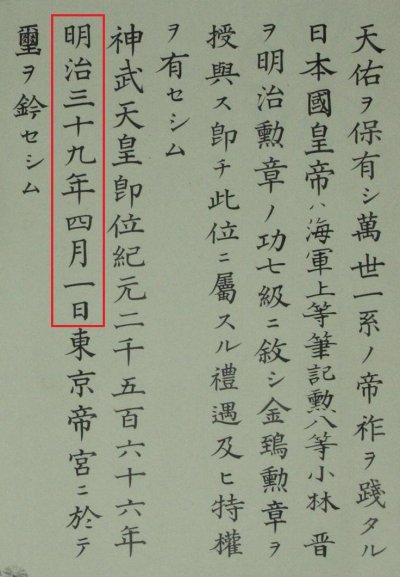 天佑ヲ保有シ萬世一系ノ帝祚ヲ踐タル
日本國皇帝ハ海軍上等筆記勲八等小林晋
ヲ明治勲章ノ功七級ニ敘シ金鵄勲章ヲ
授與ス卽チ此位ニ屬スル禮遇及ヒ特權
ヲ有セシム
神武天皇卽位紀元二千五百六十六年
明治三十九年四月一日東京帝宮ニ於テ
璽ヲ鈐セシム